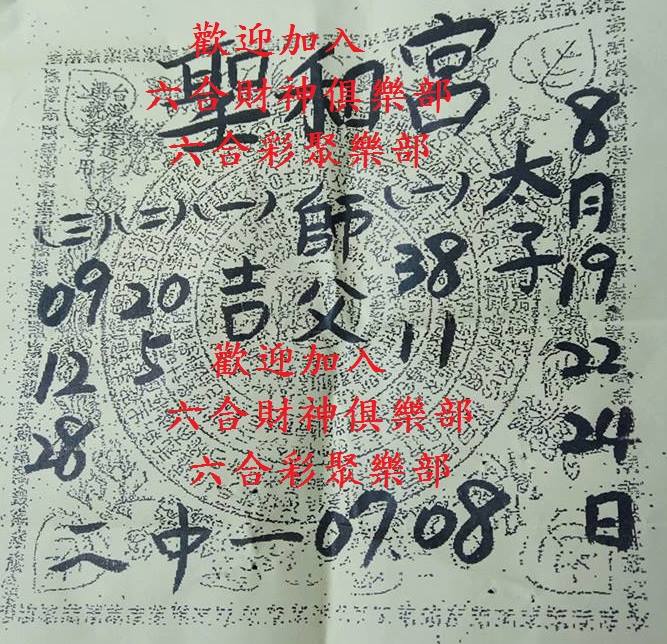 歡迎加入
六合財神俱樂部
六合彩聚樂部
聖和宮
8月19.22.24日
太子
(一)
38
11
師父
(一)
吉
(二)
20
5
(三)
09
12
28
二中一0708
歡迎加入
六合財神俱樂部
六合彩聚樂部